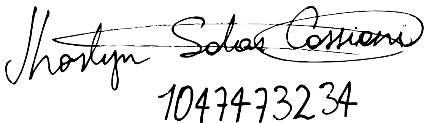 Jhostyn Salas Cassiani
1047473234